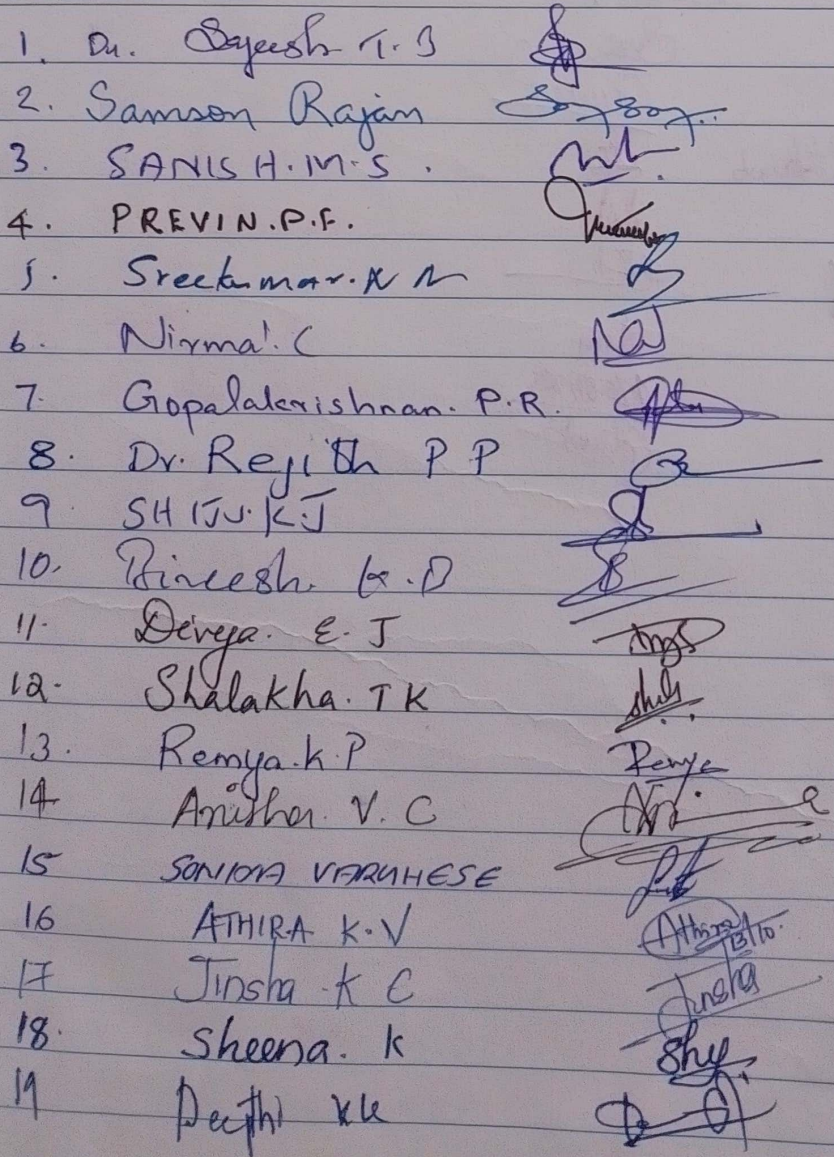 1. Dr. Sajeesh T.B
2. Samson Rajan
3. SANISH.M.S.
4. PREVIN.P.F.
5. Sreekumar.K N
6. Nirmal.C
7. Gopalakrishnan. P.R.
8. Dr. Rejith P P
9 SHIJU.K.J
10. Bineesh K.D
11. Divya. E.J
12. Shalakha. T K
13. Remya.K.P Remya
14 Anitha. V.C
15 VARGHESE
16 ATHIRA K.V Athira 13/10.
17 Jinsha K C Jinsha
18. Sheena. K
19 Deepthi KK